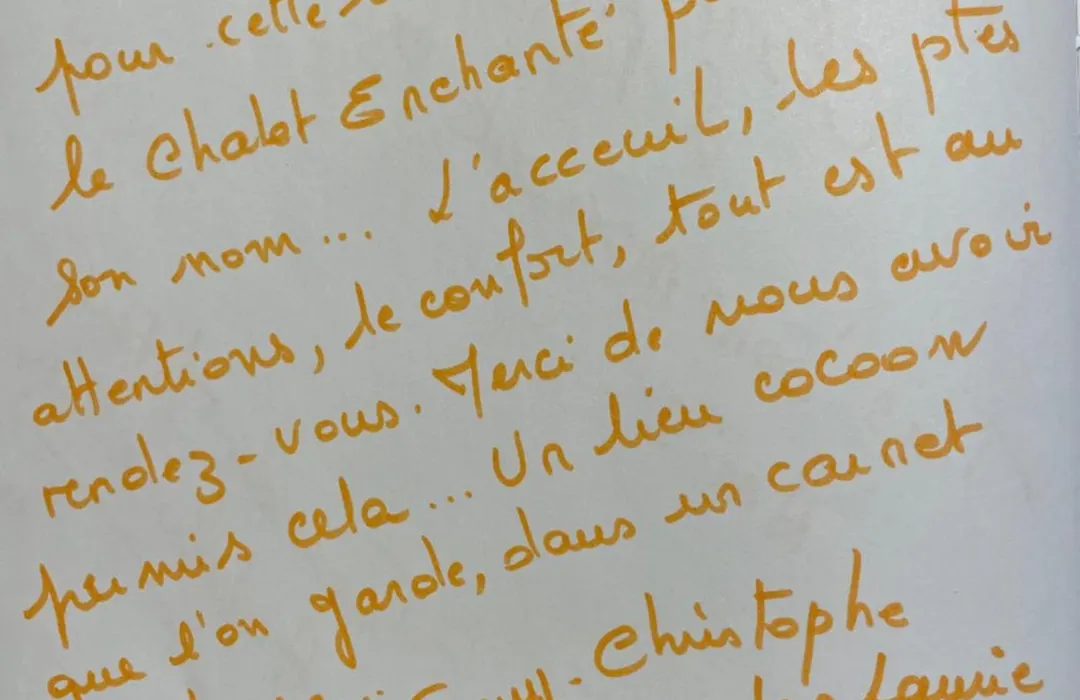 pour cette
le Chalet Enchanté
son nom... L'acceuil, les ptes
attentions, le confort, tout est au
rendez-vous. Merci de nous avoir
permis cela... Un lieu cocoon
que l'on garde, dans un carnet
Christophe